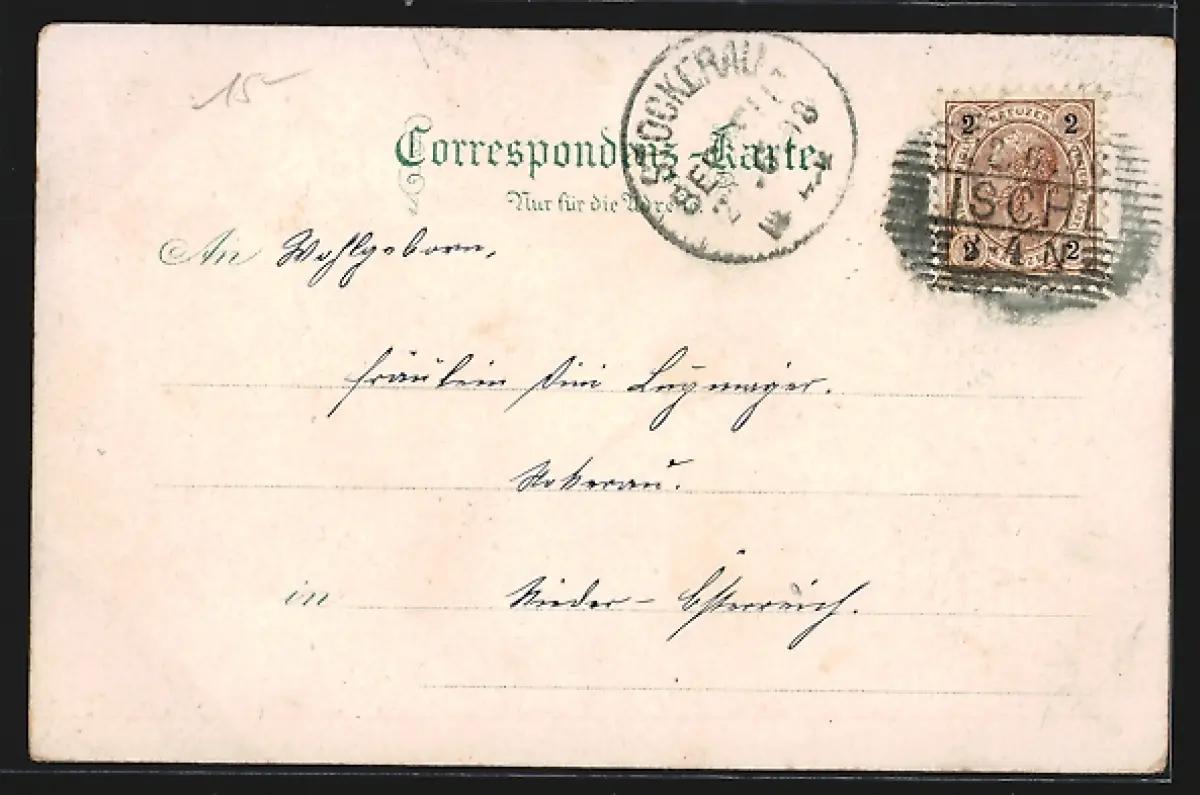 15-
Correspondenz-Karte.
Nur für die Adresse.
STOCKERAU
BESTELLT
ISCHL
KREUZER
2 2
2 2
An Wohlgeborn,
Fräulein Lugmayer.
Stokerau.
in Nieder-Österreich.